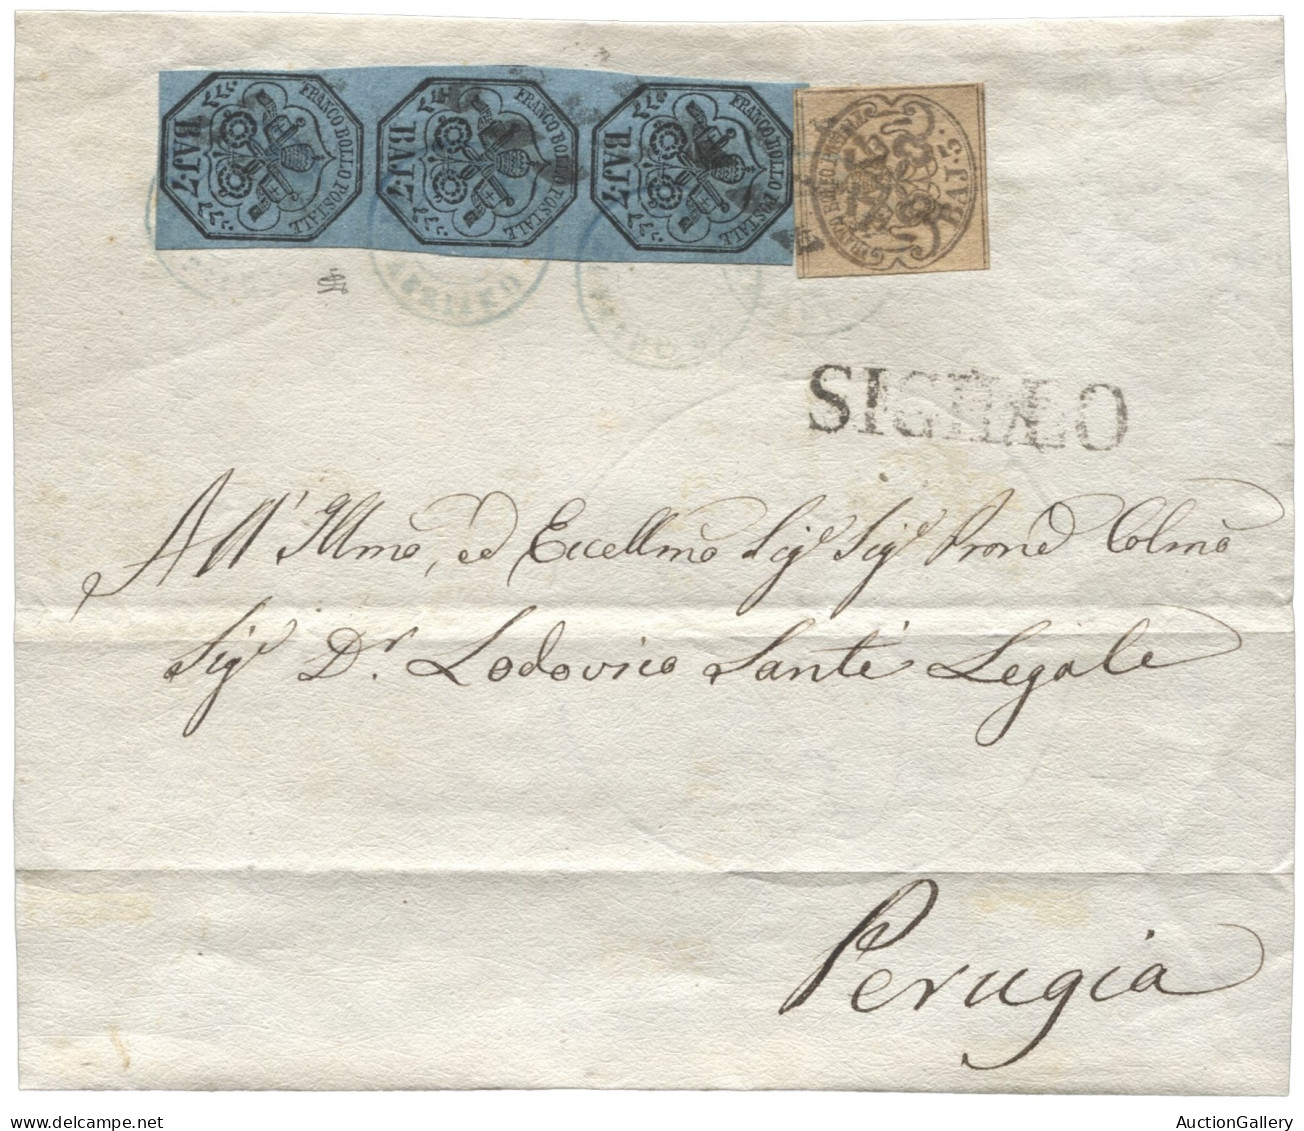 FRANCO BOLLO POSTALE BAJ·7
FRANCO BOLLO POSTALE BAJ·7
FRANCO BOLLO POSTALE BAJ·7
BAJ·5·
SIGILLO
All' Illmo, ed Eccellmo Sigr Sigr Prone Colmo
Sigr Dr. Lodovico Santi Legale
Perugia
AuctionGallery